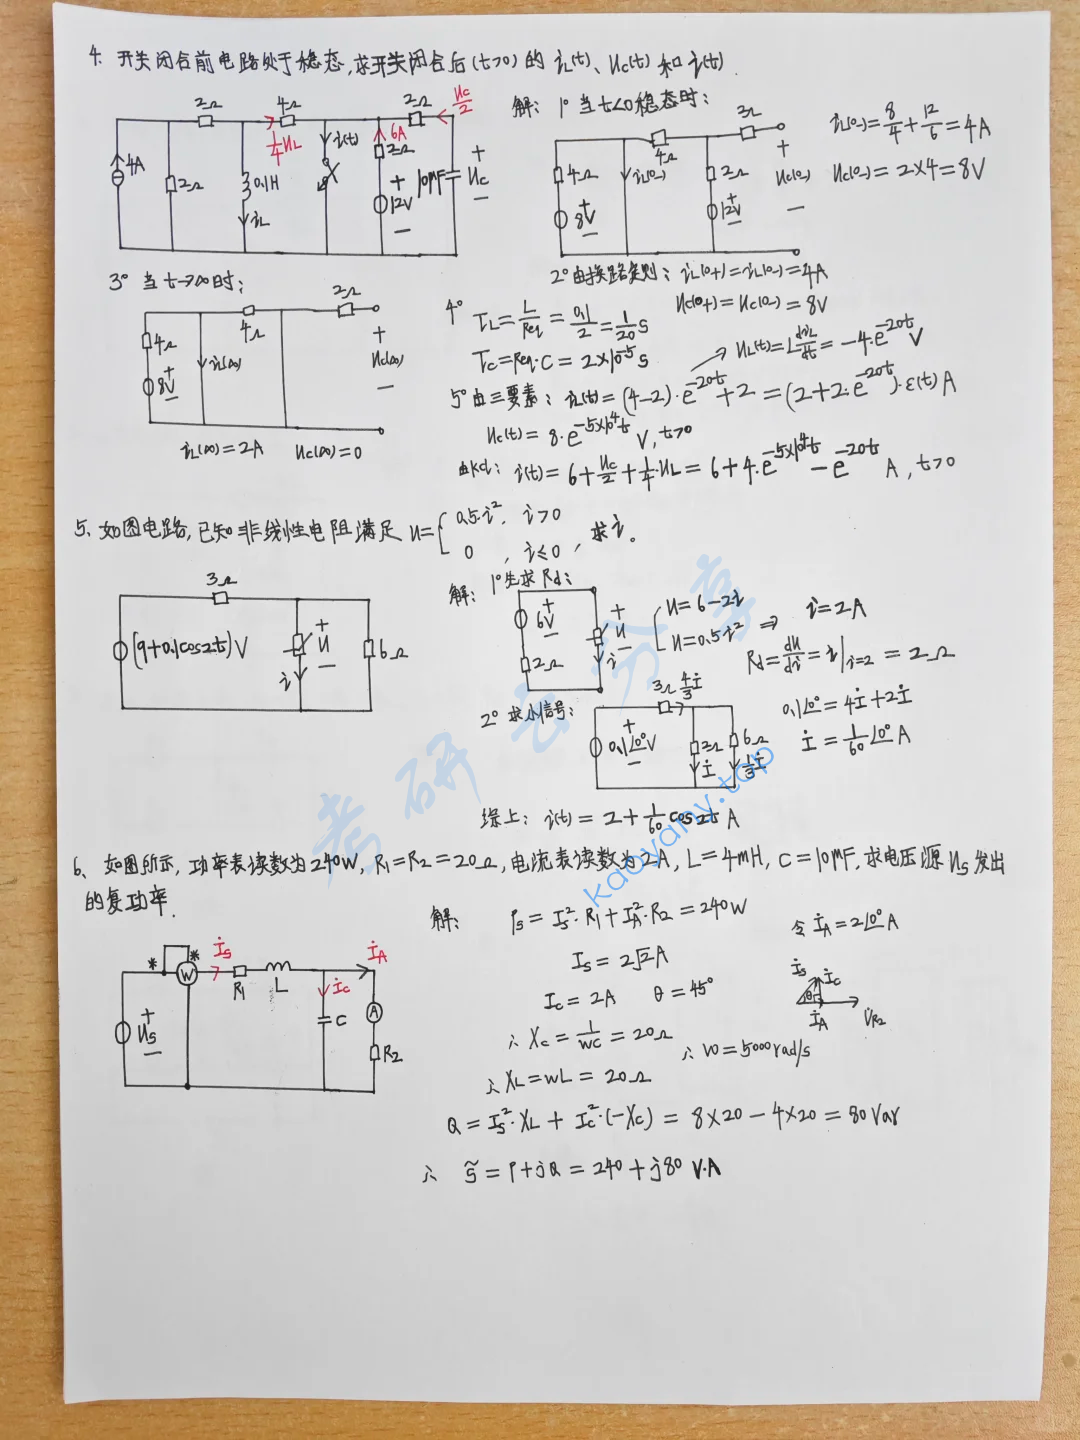 4. 开关闭合前电路处于稳态,求开关闭合后(t>0)的 iL(t)、uc(t) 和 i(t).
2Ω 4Ω 2Ω uc/2
1/4 uL i(t) 6A 2Ω
4A 2Ω 0.1H iL + 12V − 10μF + uc −
解: 1° 当t<0稳态时: 3Ω
4Ω
4Ω iL(0-) 2Ω + uc(0-) −
+ 8V − 12V
iL(0-) = 8/4 + 12/6 = 4A
uc(0-) = 2×4 = 8V
2° 由换路定则: iL(0+) = iL(0-) = 4A
uc(0+) = uc(0-) = 8V
3° 当t→∞时:
2Ω
4Ω
4Ω iL(∞) + uc(∞) −
+ 8V −
iL(∞) = 2A uc(∞) = 0
4° τL = L/Req = 0.1/2 = 1/20 s
τc = Req·C = 2×10^-5 s
→ uL(t) = L diL/dt = −4·e^-20t V
5° 由三要素: iL(t) = (4−2)·e^-20t + 2 = (2+2·e^-20t)·ε(t) A
uc(t) = 8·e^-5×10^4t V, t>0
由KCL: i(t) = 6 + uc/2 + 1/4·uL = 6 + 4·e^-5×10^4t − e^-20t A, t>0
5、如图电路,已知非线性电阻满足 u = { 0.5i², i>0
0 , i≤0 , 求i。
3Ω
(9+0.1cos2t)V + u − i 6Ω
解: 1° 先求 Rd:
+ 6V − + u −
2Ω i
{ u = 6−2i
u = 0.5i² ⇒ i = 2A
Rd = du/di = i|i=2 = 2Ω
2° 求小信号:
3Ω 4/3 İ
+ 0.1∠0°V − 2Ω 6Ω
İ 1/3 İ
0.1∠0° = 4İ + 2İ
İ = 1/60 ∠0° A
综上: i(t) = 2 + 1/60 cos2t A
6、如图所示, 功率表读数为240W, R1=R2=20Ω, 电流表读数为2A, L=4mH, C=10μF, 求电压源 Us 发出
的复功率.
* * W İs R1 L İA
İc C A R2
+ U̇s −
解: Ps = Is²·R1 + IA²·R2 = 240W
令 İA = 2∠0° A
Is = 2√2 A
Ic = 2A θ = 45°
İs İc θ İA U̇R2
∴ Xc = 1/wC = 20Ω ∴ w = 5000 rad/s
∴ XL = wL = 20Ω
Q = Is²·XL + Ic²·(−Xc) = 8×20 − 4×20 = 80 Var
∴ S̃ = P+jQ = 240 + j80 V·A
考研云分享
kaoyany.top